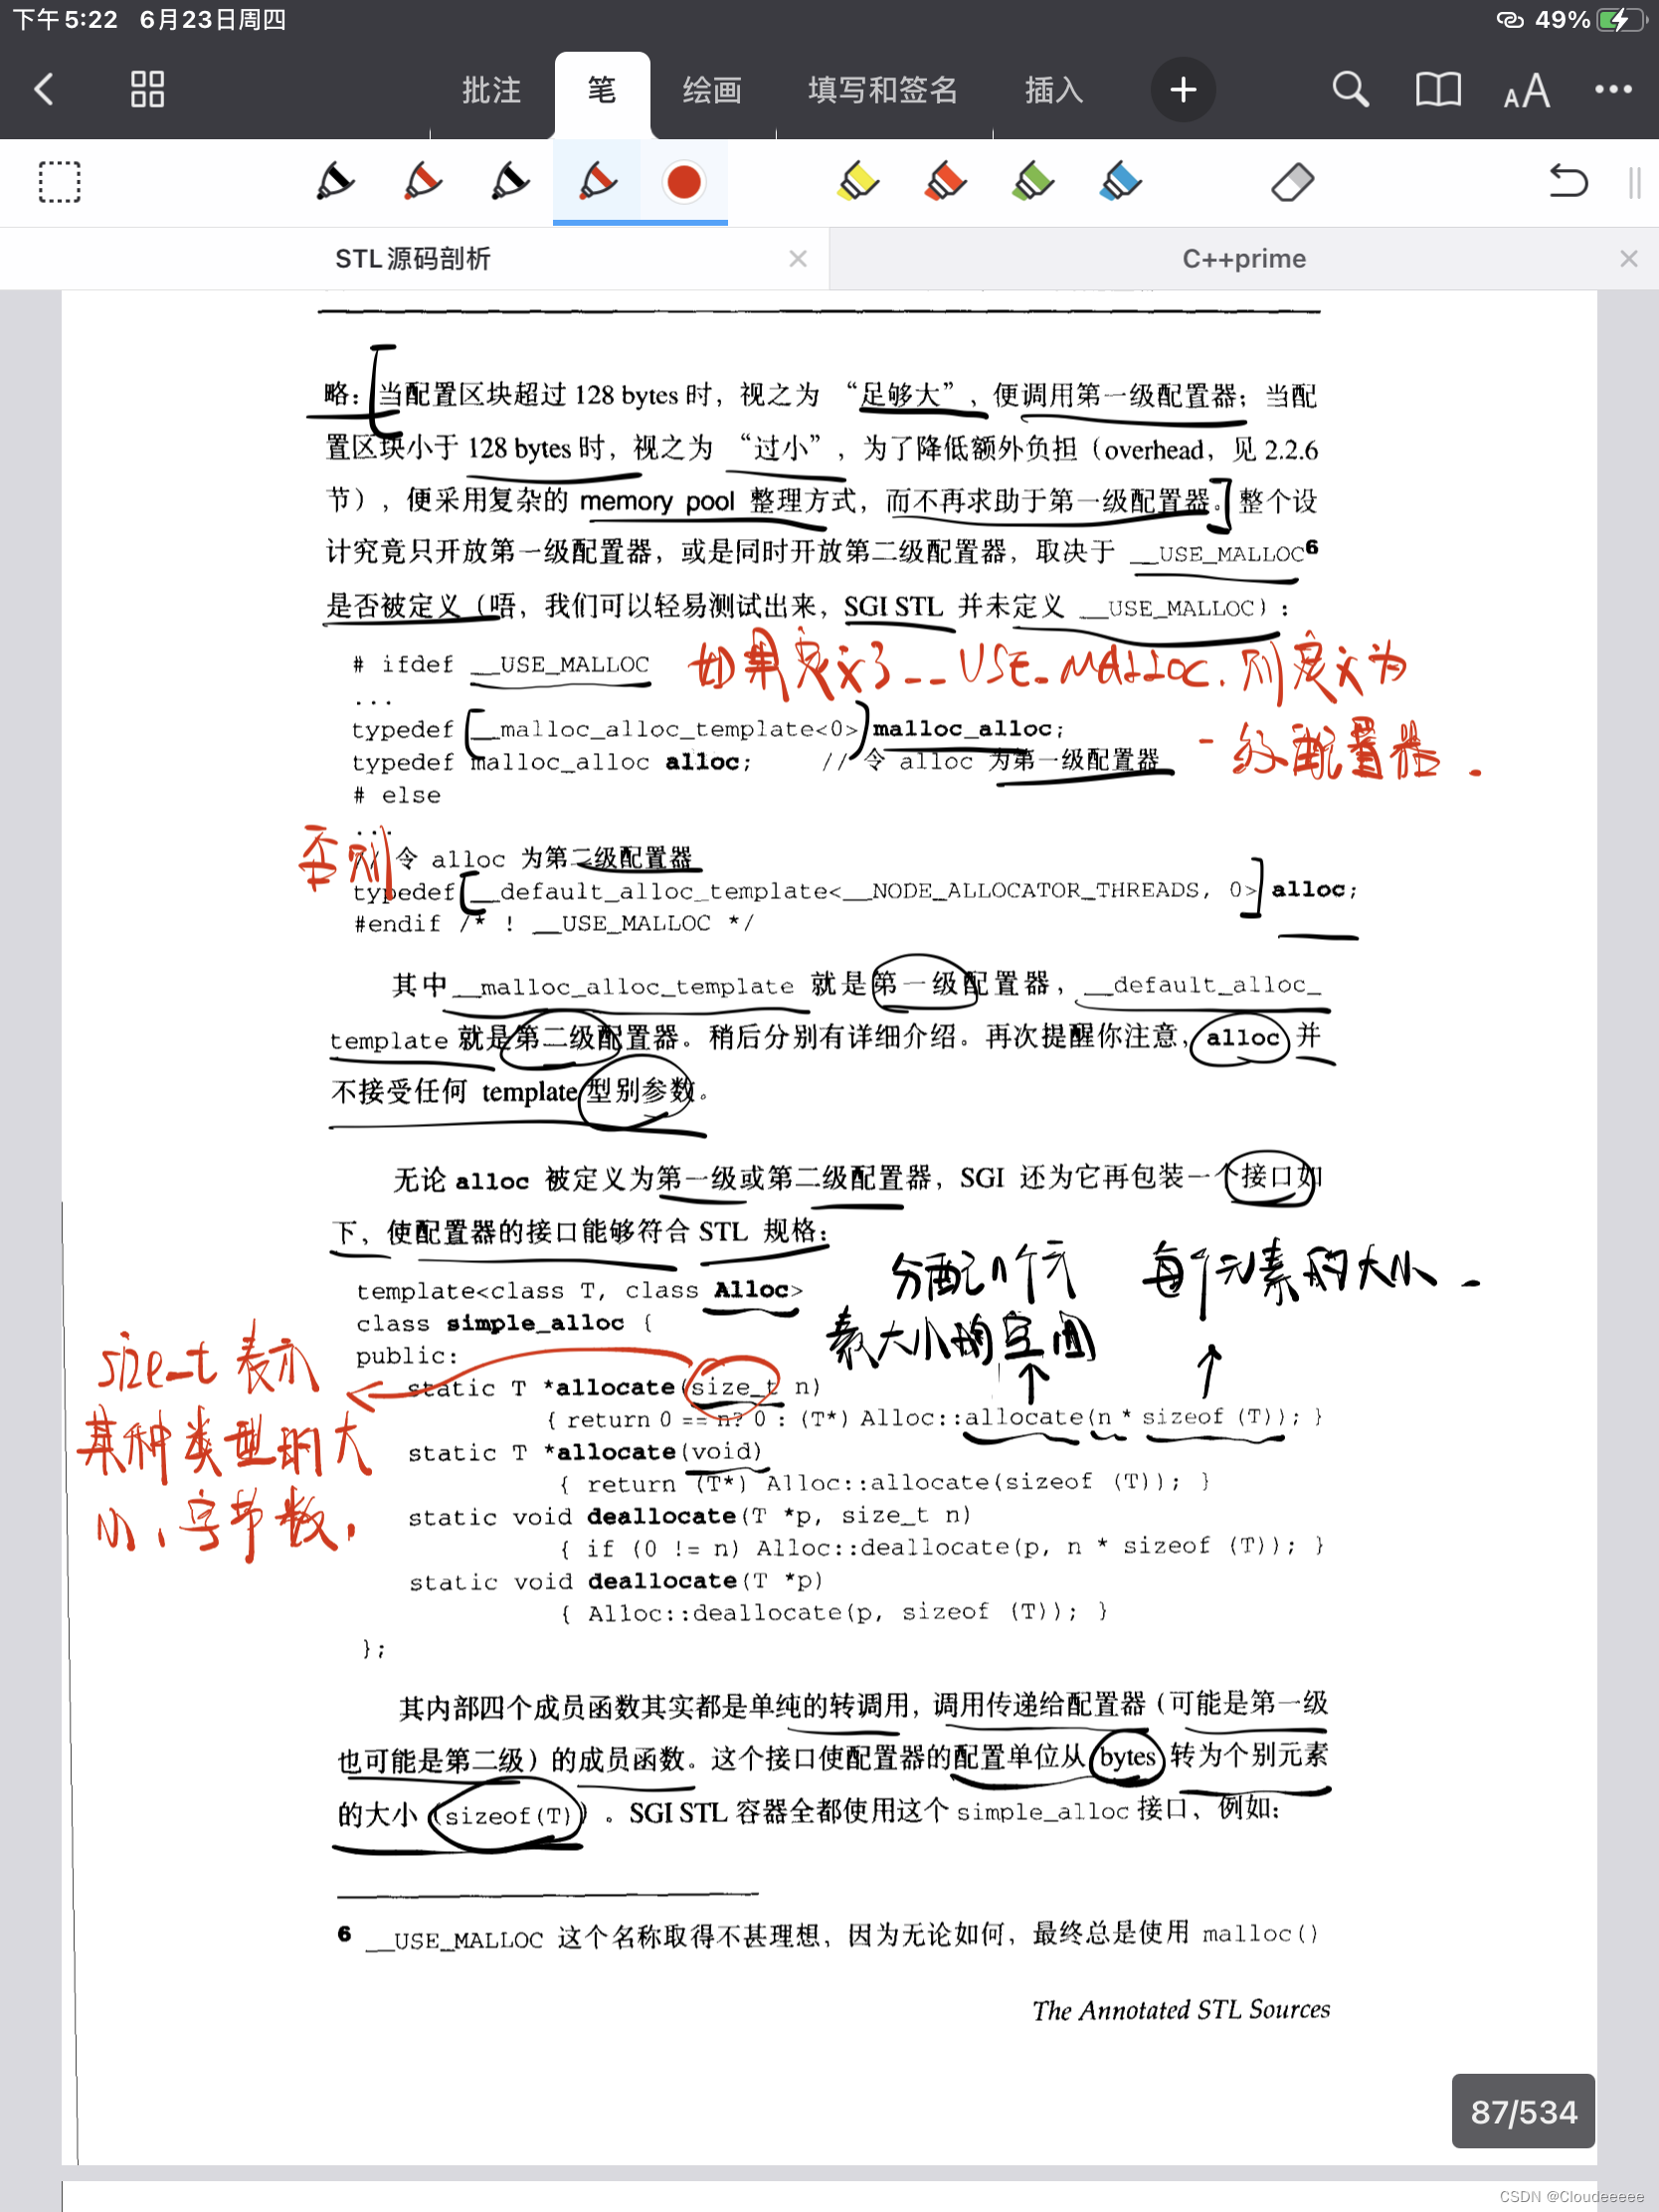 下午5:22 6月23日周四
49%
批注 笔 绘画 填写和签名 插入
STL源码剖析
C++prime
略：当配置区块超过 128 bytes 时，视之为“足够大”，便调用第一级配置器；当配
置区块小于 128 bytes 时，视之为“过小”，为了降低额外负担（overhead，见 2.2.6
节），便采用复杂的 memory pool 整理方式，而不再求助于第一级配置器。整个设
计究竟只开放第一级配置器，或是同时开放第二级配置器，取决于 __USE_MALLOC6
是否被定义（唔，我们可以轻易测试出来，SGI STL 并未定义 __USE_MALLOC）：
# ifdef __USE_MALLOC
如果定义了__USE_MALLOC.则定义为
一级配置器.
...
typedef __malloc_alloc_template<0> malloc_alloc;
typedef malloc_alloc alloc; // 令 alloc 为第一级配置器
# else
否则
...
// 令 alloc 为第二级配置器
typedef __default_alloc_template<__NODE_ALLOCATOR_THREADS, 0> alloc;
#endif /* ! __USE_MALLOC */
其中__malloc_alloc_template 就是第一级配置器，__default_alloc_
template 就是第二级配置器。稍后分别有详细介绍。再次提醒你注意，alloc 并
不接受任何 template 型别参数。
无论 alloc 被定义为第一级或第二级配置器，SGI 还为它再包装一个接口如
下，使配置器的接口能够符合 STL 规格：
分配n个元
素大小的空间
每个元素的大小.
template<class T, class Alloc>
class simple_alloc {
public:
size_t 表示
某种类型的大
小、字节数,
static T *allocate(size_t n)
{ return 0 == n? 0 : (T*) Alloc::allocate(n * sizeof (T)); }
static T *allocate(void)
{ return (T*) Alloc::allocate(sizeof (T)); }
static void deallocate(T *p, size_t n)
{ if (0 != n) Alloc::deallocate(p, n * sizeof (T)); }
static void deallocate(T *p)
{ Alloc::deallocate(p, sizeof (T)); }
};
其内部四个成员函数其实都是单纯的转调用，调用传递给配置器（可能是第一级
也可能是第二级）的成员函数。这个接口使配置器的配置单位从 bytes 转为个别元素
的大小（sizeof(T)）。SGI STL 容器全都使用这个 simple_alloc 接口，例如：
6 __USE_MALLOC 这个名称取得不甚理想，因为无论如何，最终总是使用 malloc()
The Annotated STL Sources
87/534
CSDN @Cloudeeeee